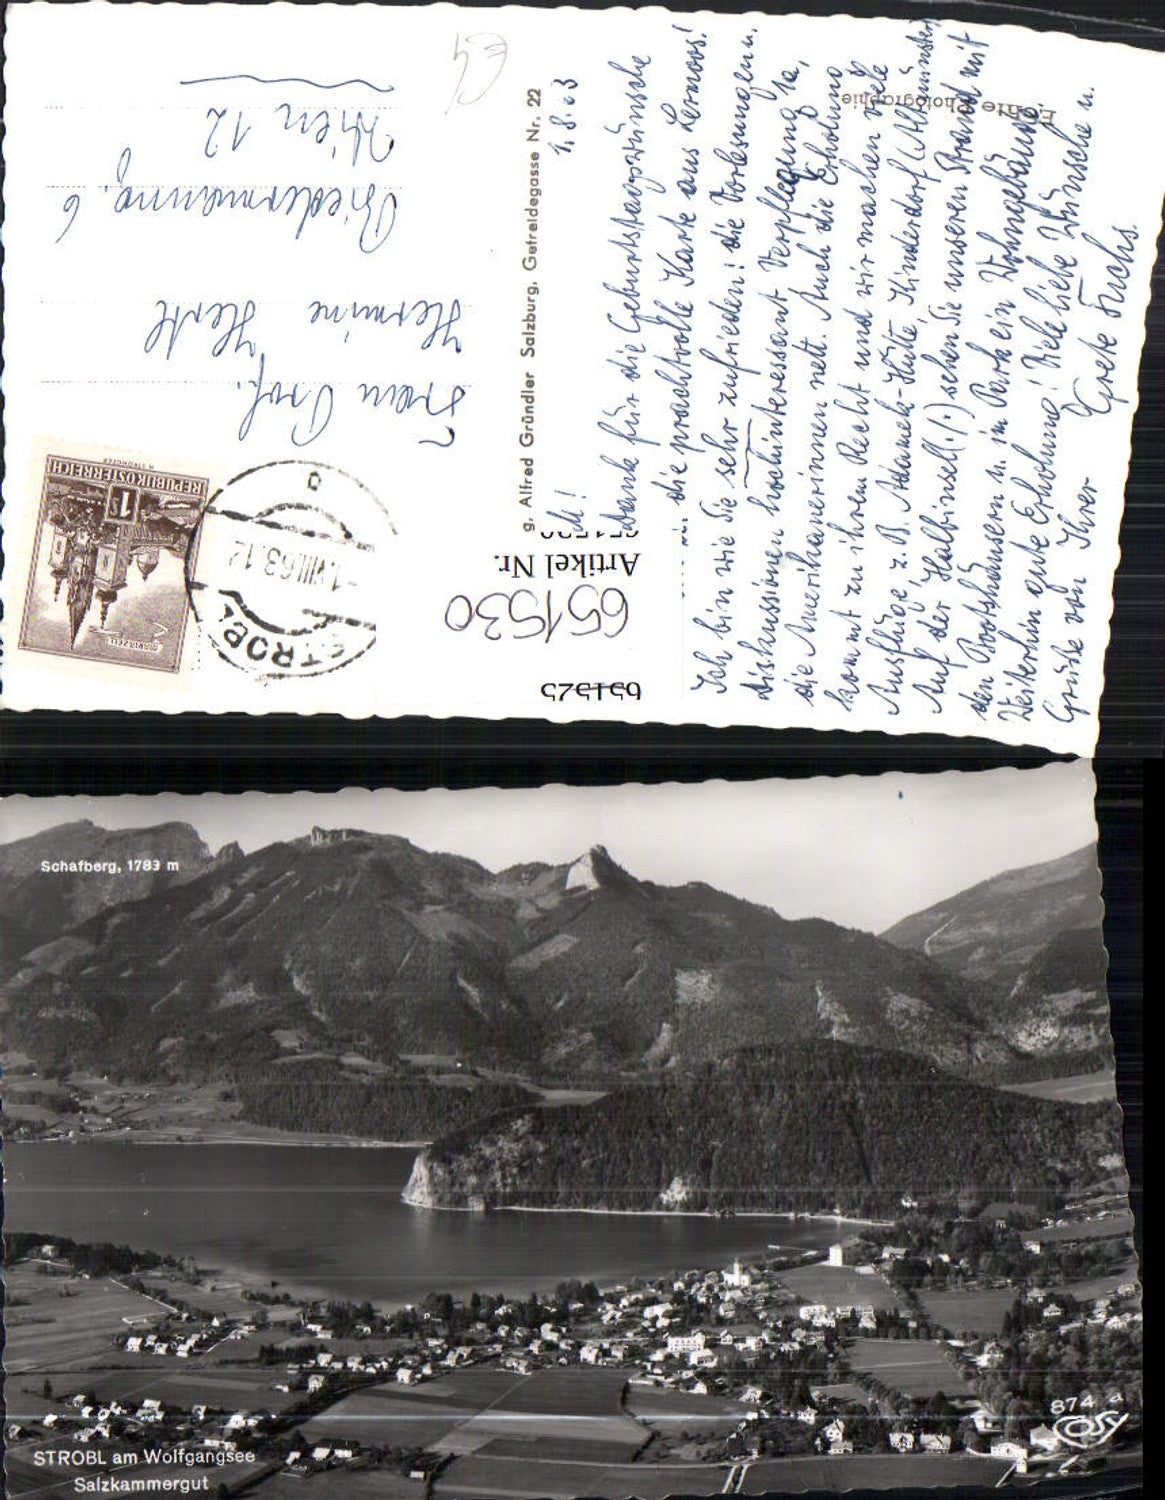 Echte Photographie
g. Alfred Gründler Salzburg, Getreidegasse Nr. 22
1.8.63
Dank für die Geburtstagswünsche
u. die prachtvolle Karte aus Lermoos!
Ich bin wie Sie sehr zufrieden: die Vorlesungen u.
Diskussionen hochinteressant, Verpflegung 1a,
die Amerikanerinnen nett. Auch die Erholung
kommt zu ihrem Recht und wir machen viele
Ausflüge, z.B. Adamek-Hütte, Kinderdorf (Altmünster)
Auf der Halbinsel (:!) sehen Sie unseren Strand mit
den Bootshäusern u. im Park ein Wohngebäude
Weiterhin gute Erholung! Viele liebe Wünsche u.
Grüsse von Ihrer Grete Fuchs.
Frau Prof.
Hermine Hertl
Biedermanng. 6
Wien 12
REPUBLIK ÖSTERREICH
1 S
MARIAZELL
STROBL
-1.VIII.63.12
c
Artikel Nr.
651530
651530
651525
Schafberg, 1783 m
STROBL am Wolfgangsee
Salzkammergut
874 a
COSY